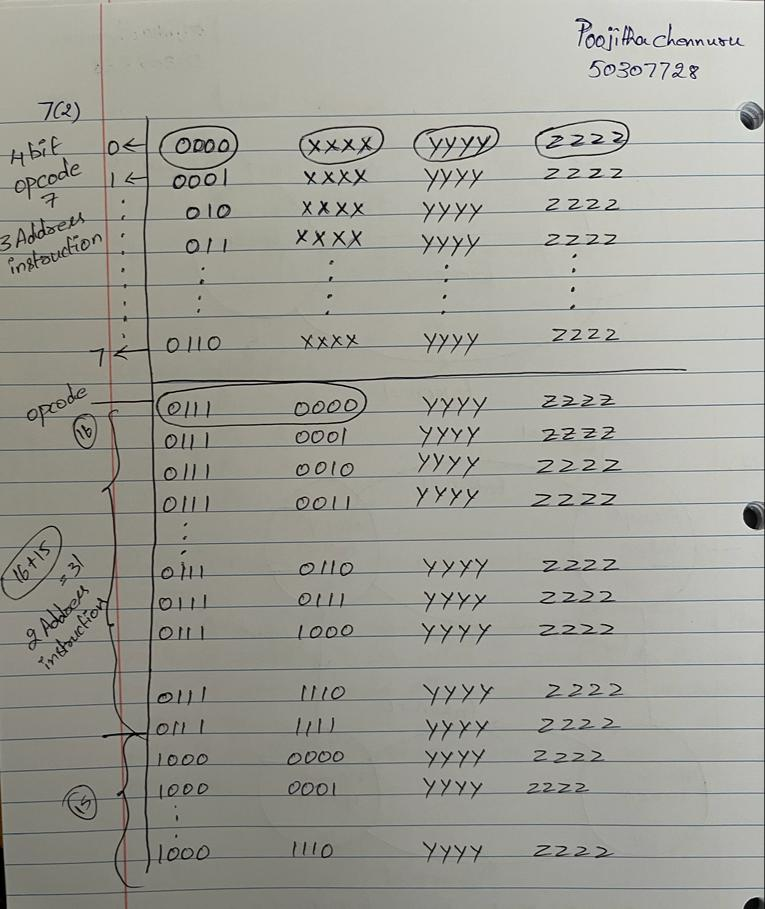 Poojitha chennuru
50307728
7(2)
4 bit opcode
7
3 Address instruction
0 ← 0000 XXXX YYYY ZZZZ
1 ← 0001 XXXX YYYY ZZZZ
010 XXXX YYYY ZZZZ
011 XXXX YYYY ZZZZ
7 ← 0110 XXXX YYYY ZZZZ
opcode 0111 0000 YYYY ZZZZ
16 0111 0001 YYYY ZZZZ
0111 0010 YYYY ZZZZ
0111 0011 YYYY ZZZZ
16+15
= 31
2 Address
instruction
0111 0110 YYYY ZZZZ
0111 0111 YYYY ZZZZ
0111 1000 YYYY ZZZZ
0111 1110 YYYY ZZZZ
0111 1111 YYYY ZZZZ
1000 0000 YYYY ZZZZ
15 1000 0001 YYYY ZZZZ
1000 1110 YYYY ZZZZ